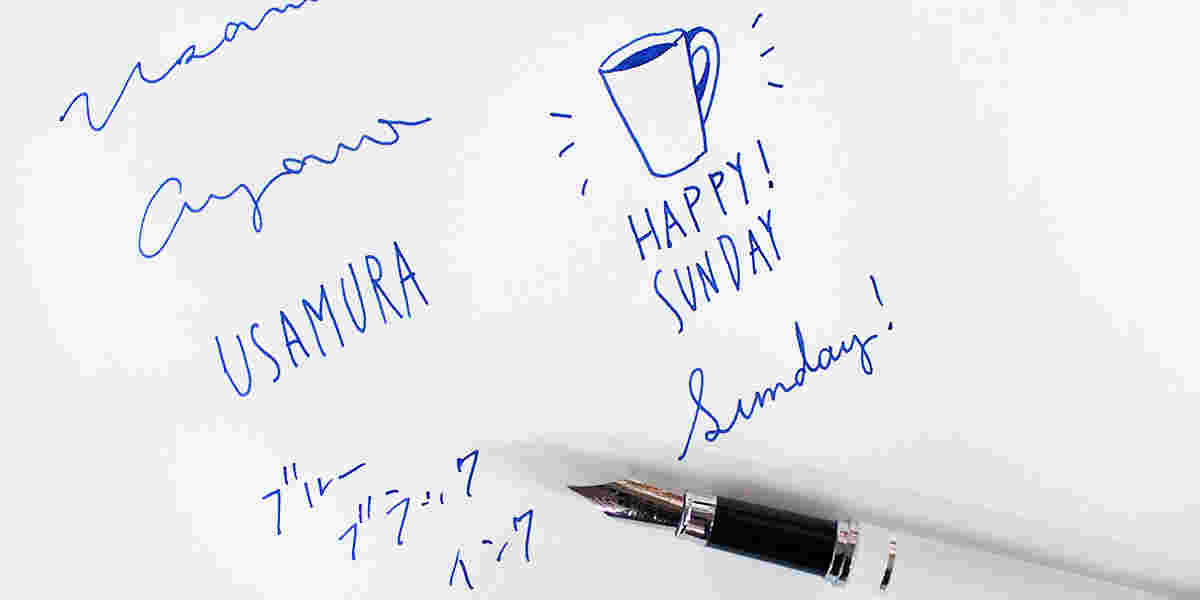 Ayano
USAMURA
ブルー
ブラック
インク
HAPPY!
SUNDAY
Sunday!